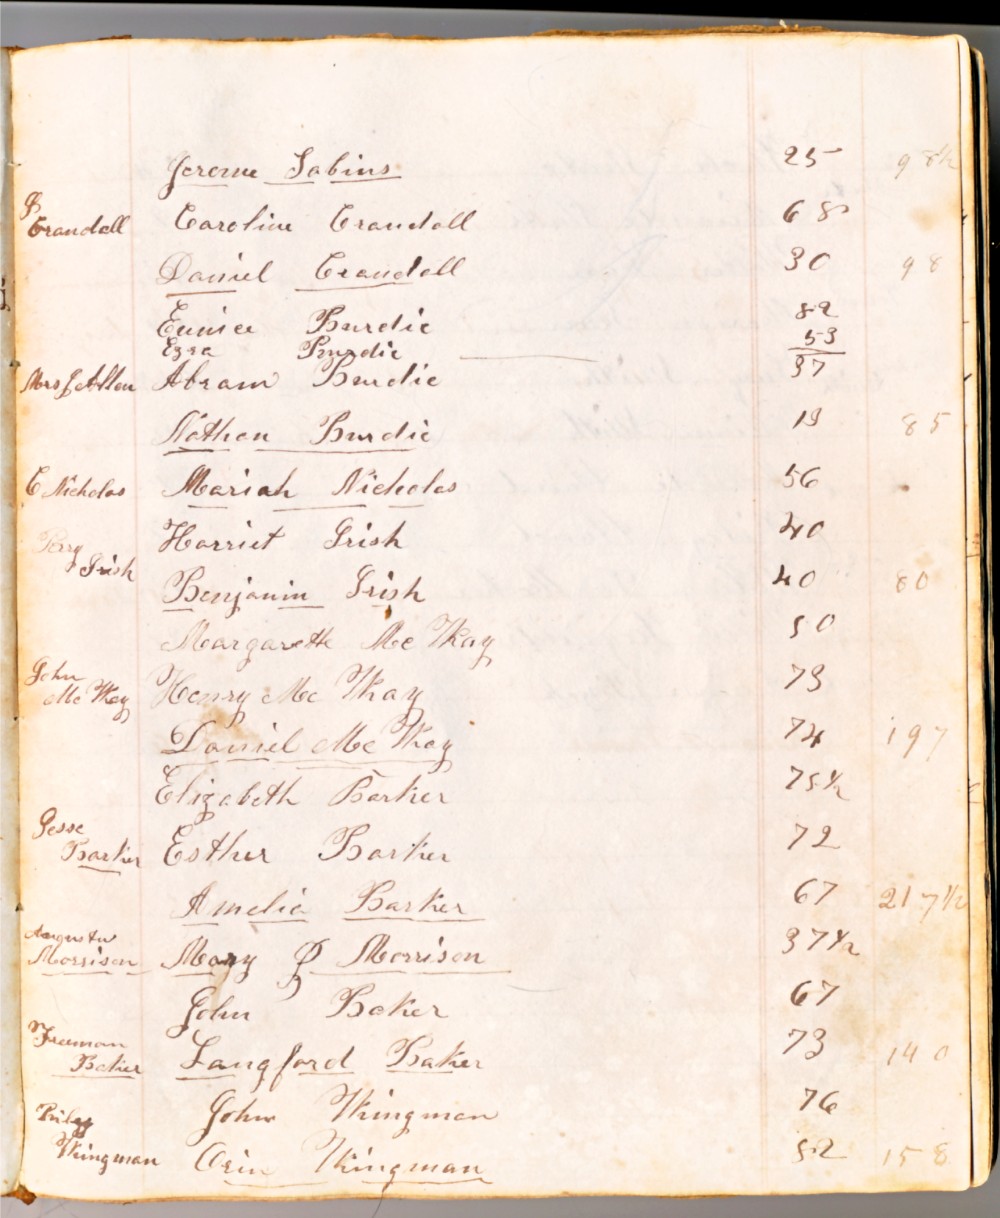 Jerome Sabins 25 98½
P Crandall Caroline Crandall 68
Daniel Crandall 30 98
Eunice Burdic 82
Ezra Burdic 53
Mrs J Allen Abram Burdic 37
Nathan Burdic 19 85
E Nicholas Mariah Nicholas 56
Perry Irish Harriet Irish 40
Benjamin Irish 40 80
Margarette Mc Kay 50
John Mc Kay Henry Mc Kay 73
Daniel Mc Kay 74 197
Elizabeth Barker 75½
Jesse Barker Esther Barker 72
Amelia Barker 67 217½
Augustu Morrison Mary P Morrison 37½
John Baker 67
Freeman Baker Langford Baker 73 140
Riley Kingman John Kingman 76
Orin Kingman 82 158